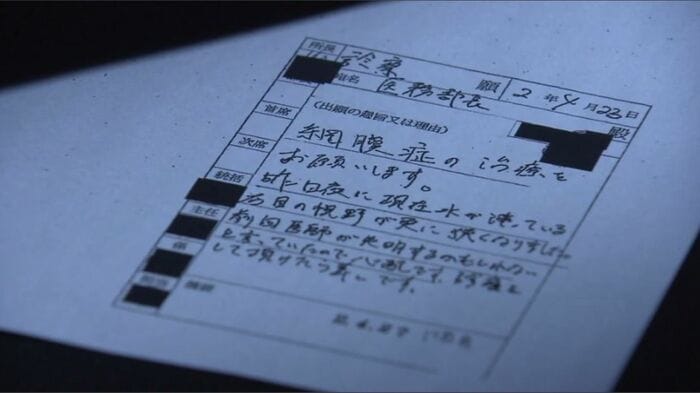 所長
診療 願 2年4月23日
宛名 医務部長 殿
首席
(出願の趣旨又は理由)
網膜症の治療を
次席
お願いします。
統括
昨日夜に現在水が溜っている
主任
右目の視野が更に狭くなりました。
係
医師が失明するかもしれない
と言っていたので心配です。診療を
して頂けたら幸いです。
担当
摘要